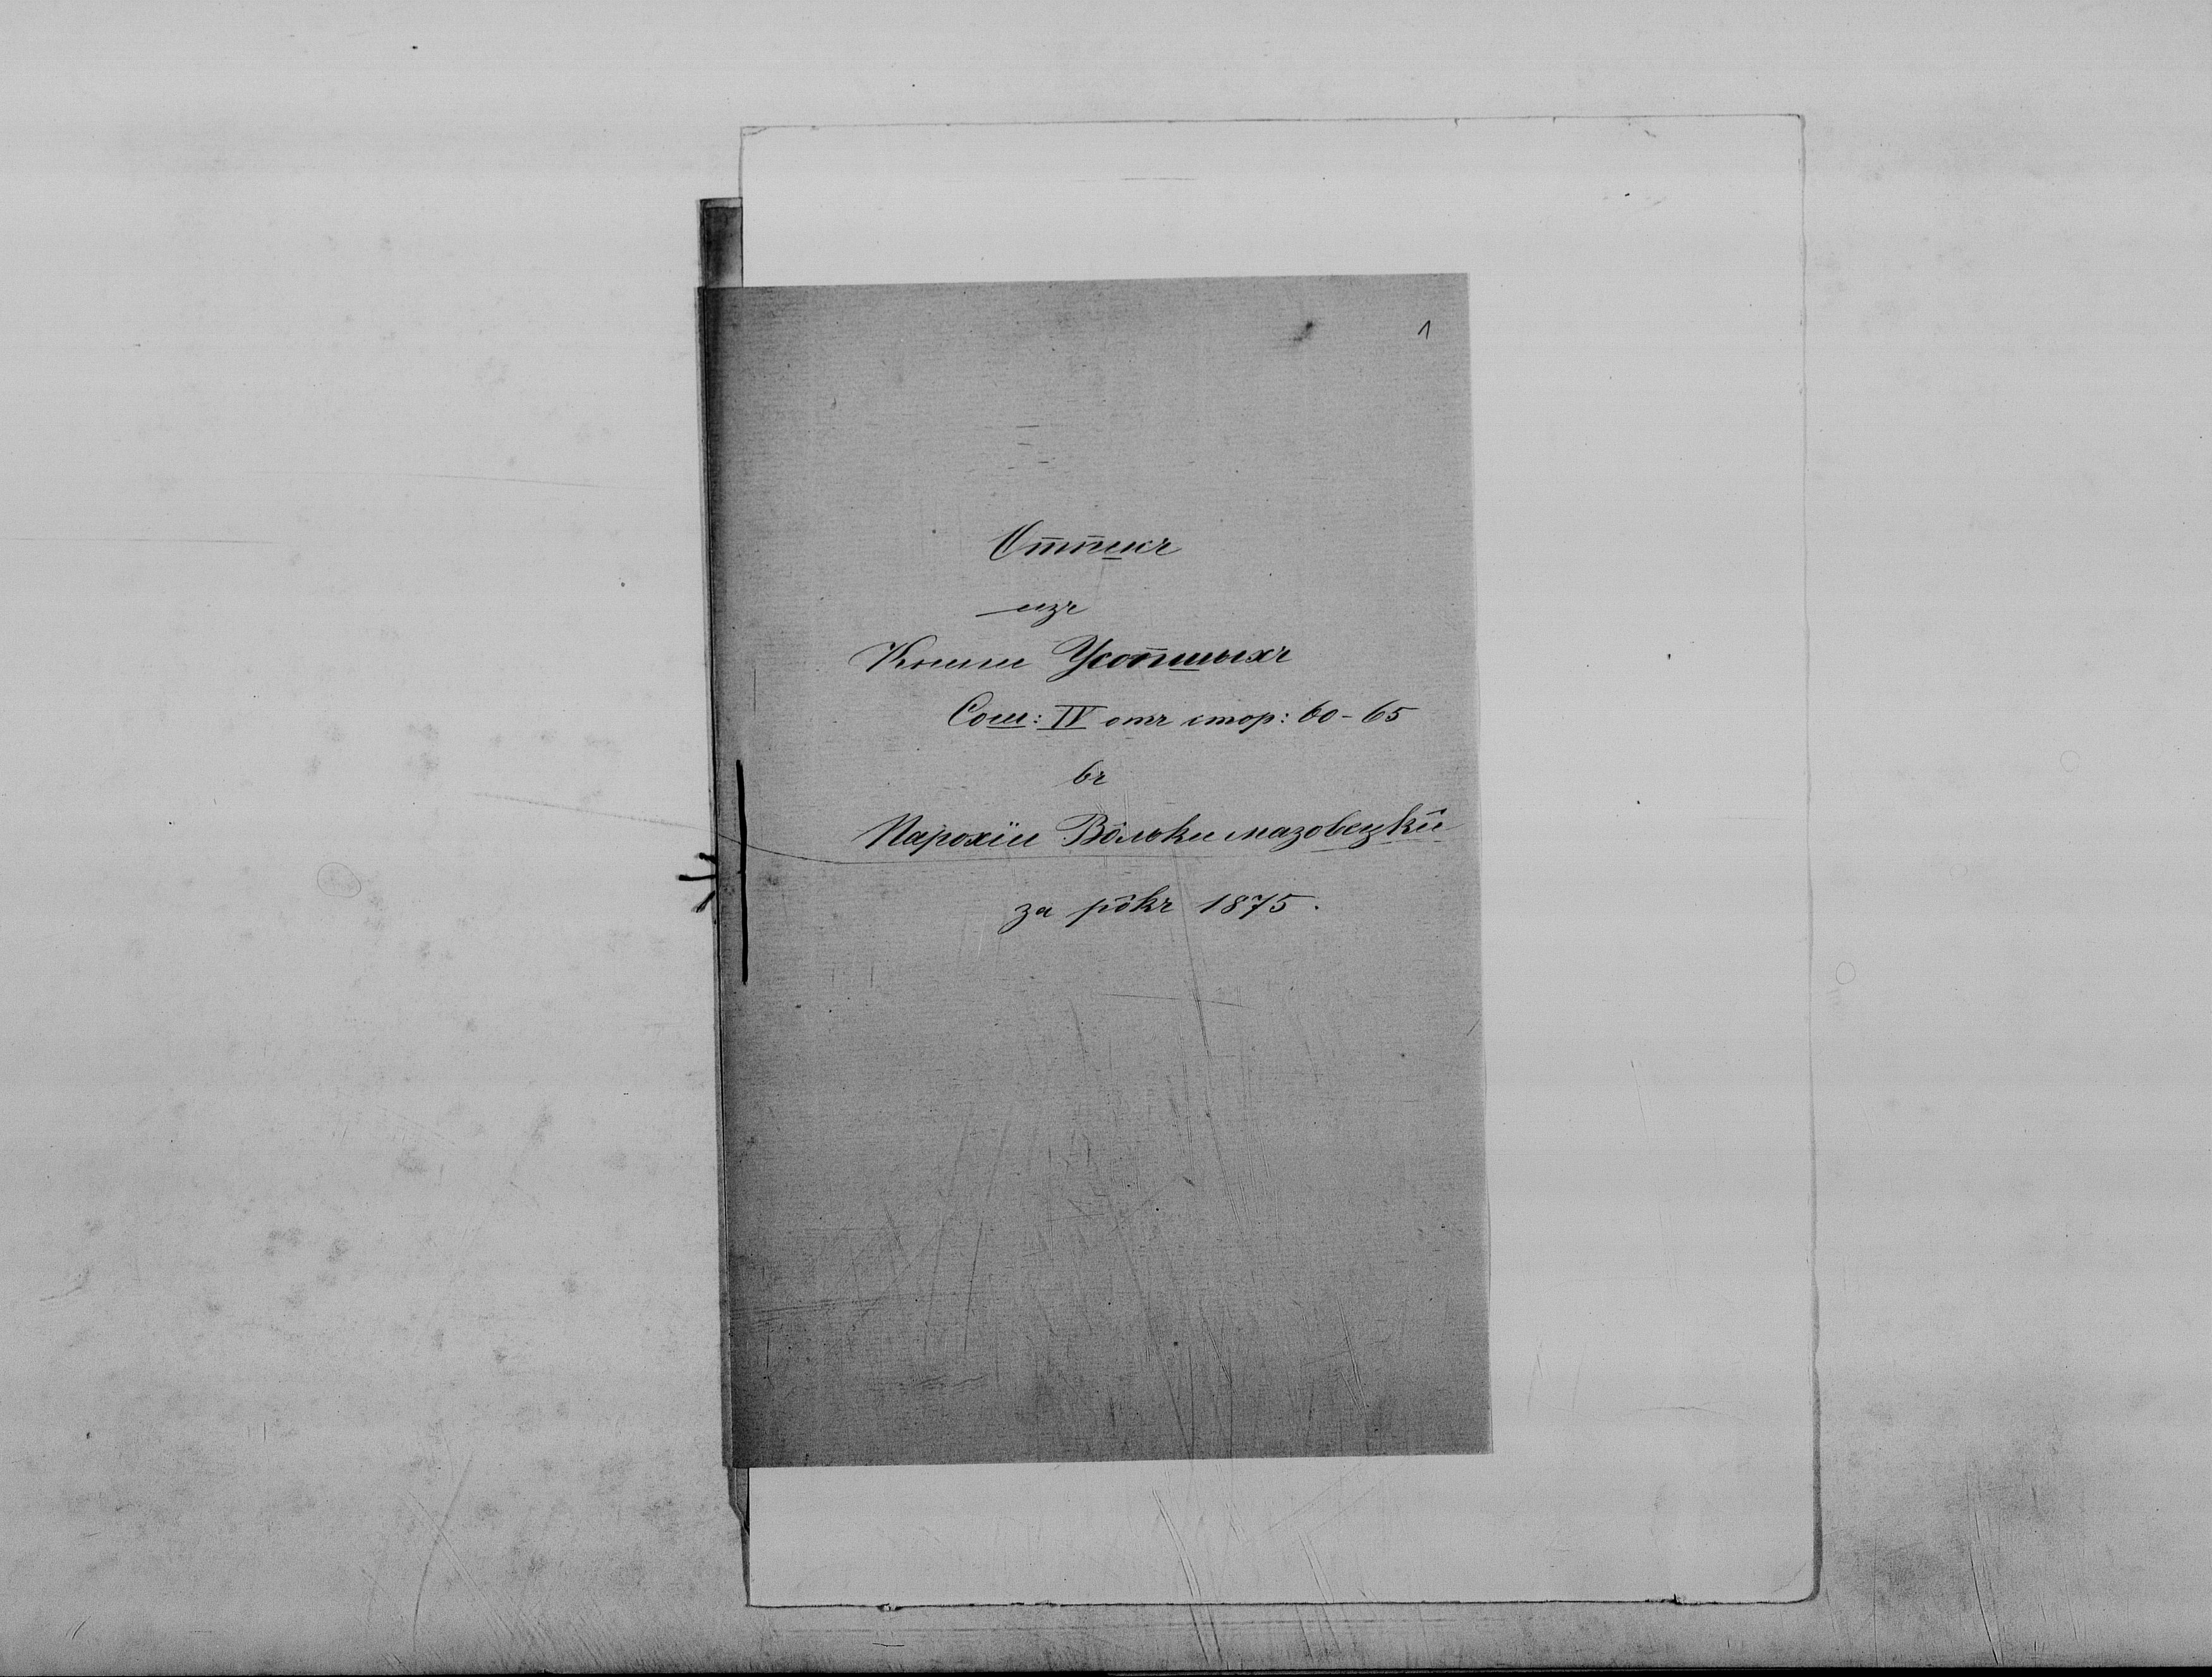 1
Отпикъ
изъ
Книги Усопшихъ
Сош: IV отъ стор: 60-65
въ
Парохіи Вôльки мазовецкîи
за рôкъ 1875.